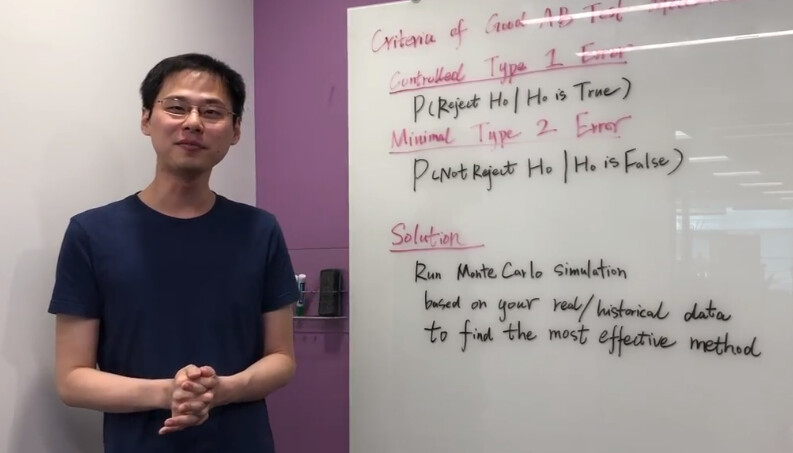 Criteria of Good AB Test
Controlled Type 1 Error
P(Reject Ho | Ho is True)
Minimal Type 2 Error
P(Not Reject Ho | Ho is False)
Solution
Run Monte Carlo simulation
based on your real/historical data
to find the most effective method